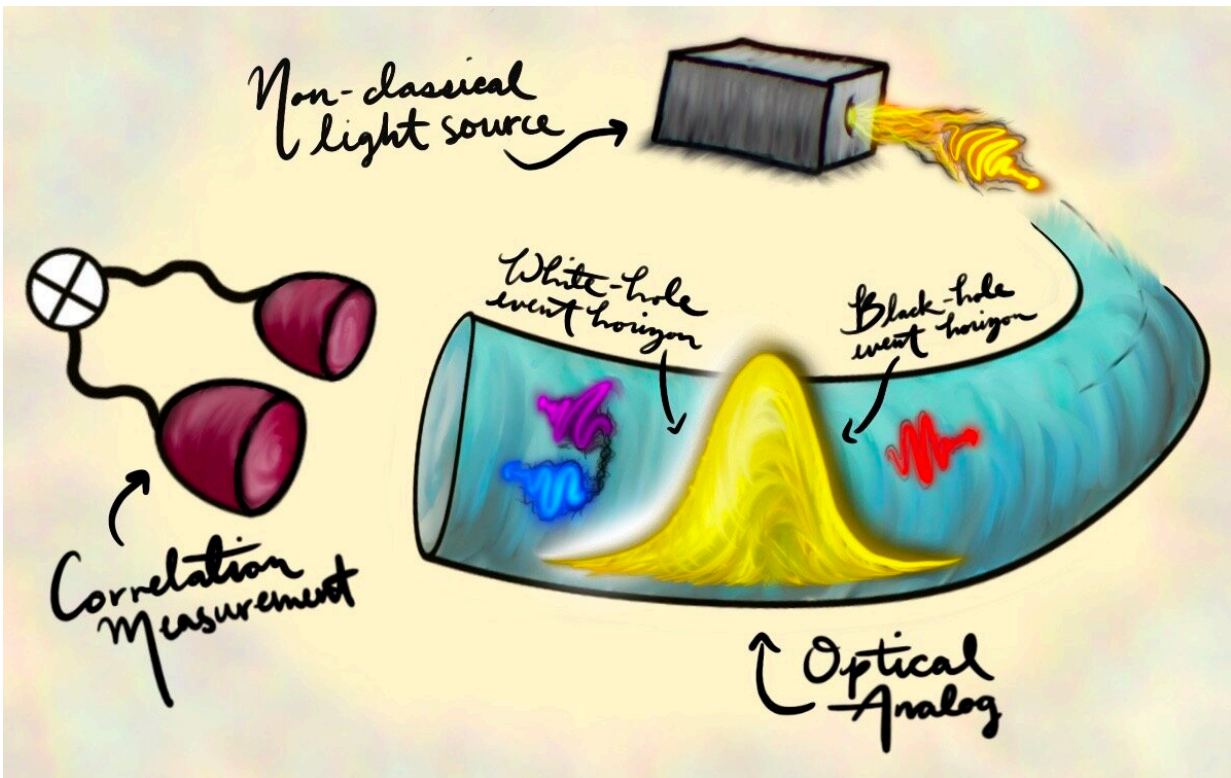 Non-classical
light source
White-hole
event horizon
Black-hole
event horizon
Correlation
Measurement
Optical
Analog